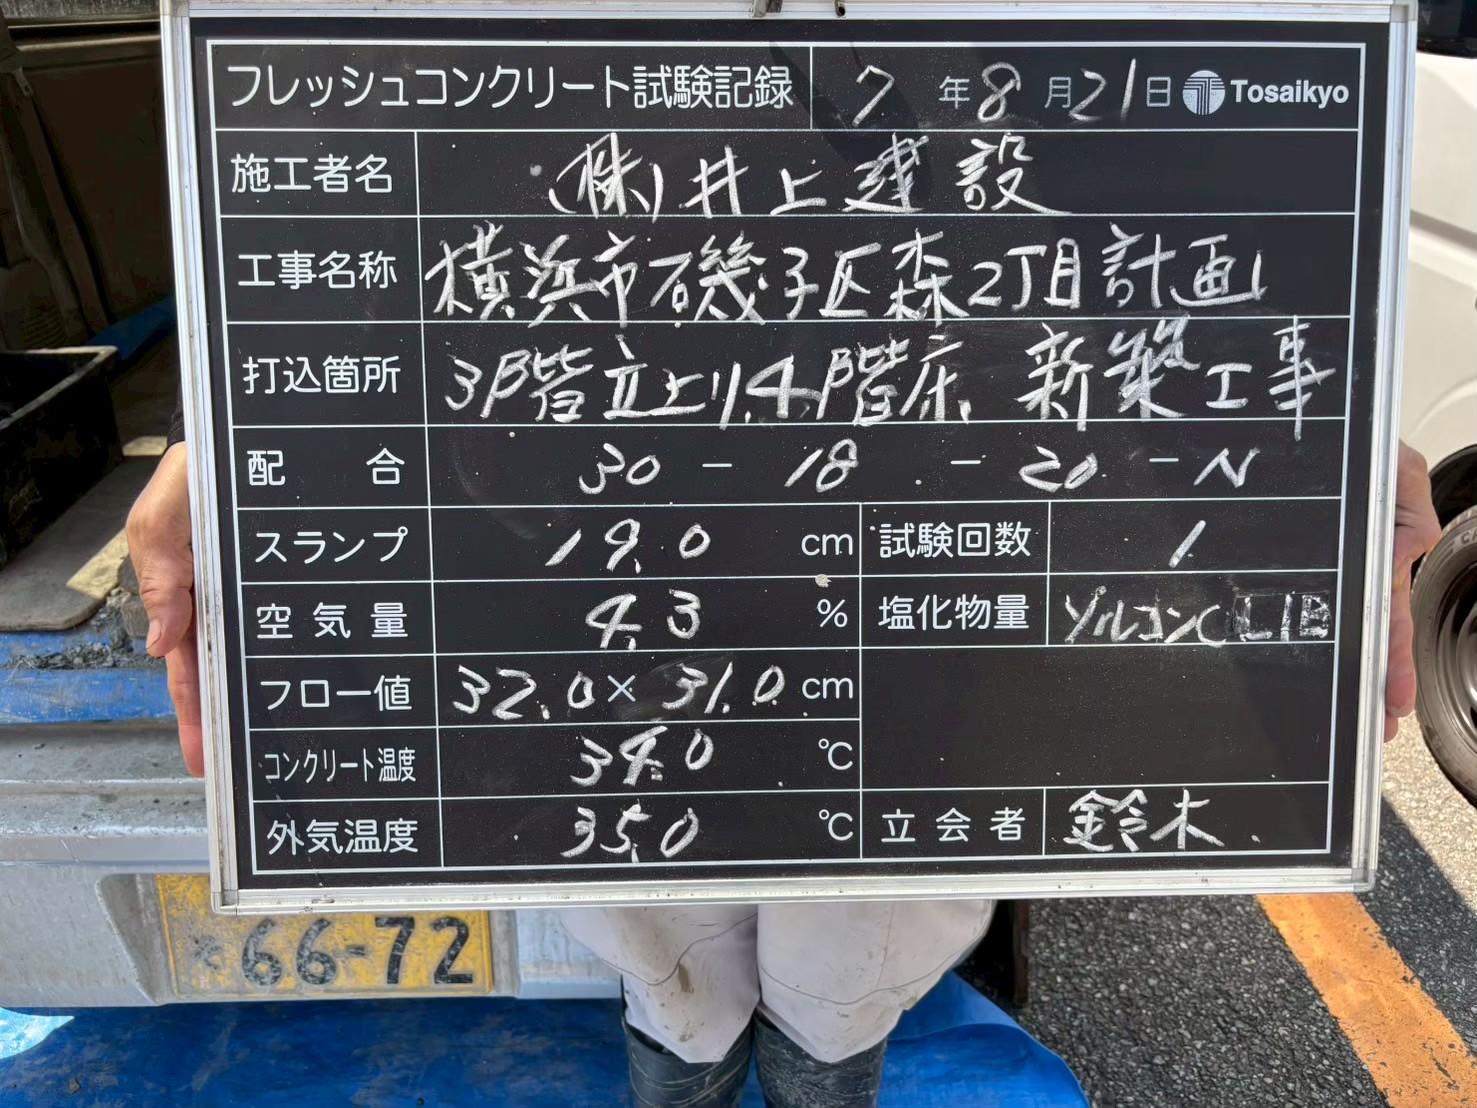 フレッシュコンクリート試験記録 7年8月21日 Tosaikyo
施工者名 (株)井上建設
工事名称 横浜市磯子区森2丁目計画
打込箇所 3階立上り,4階床 新築工事
配合 30-18-20-N
スランプ 19.0 cm 試験回数 1
空気量 4.3 % 塩化物量 ソルコンC LIB
フロー値 32.0×31.0 cm
コンクリート温度 34.0 ℃
外気温度 35.0 ℃ 立会者 鈴木
66-72